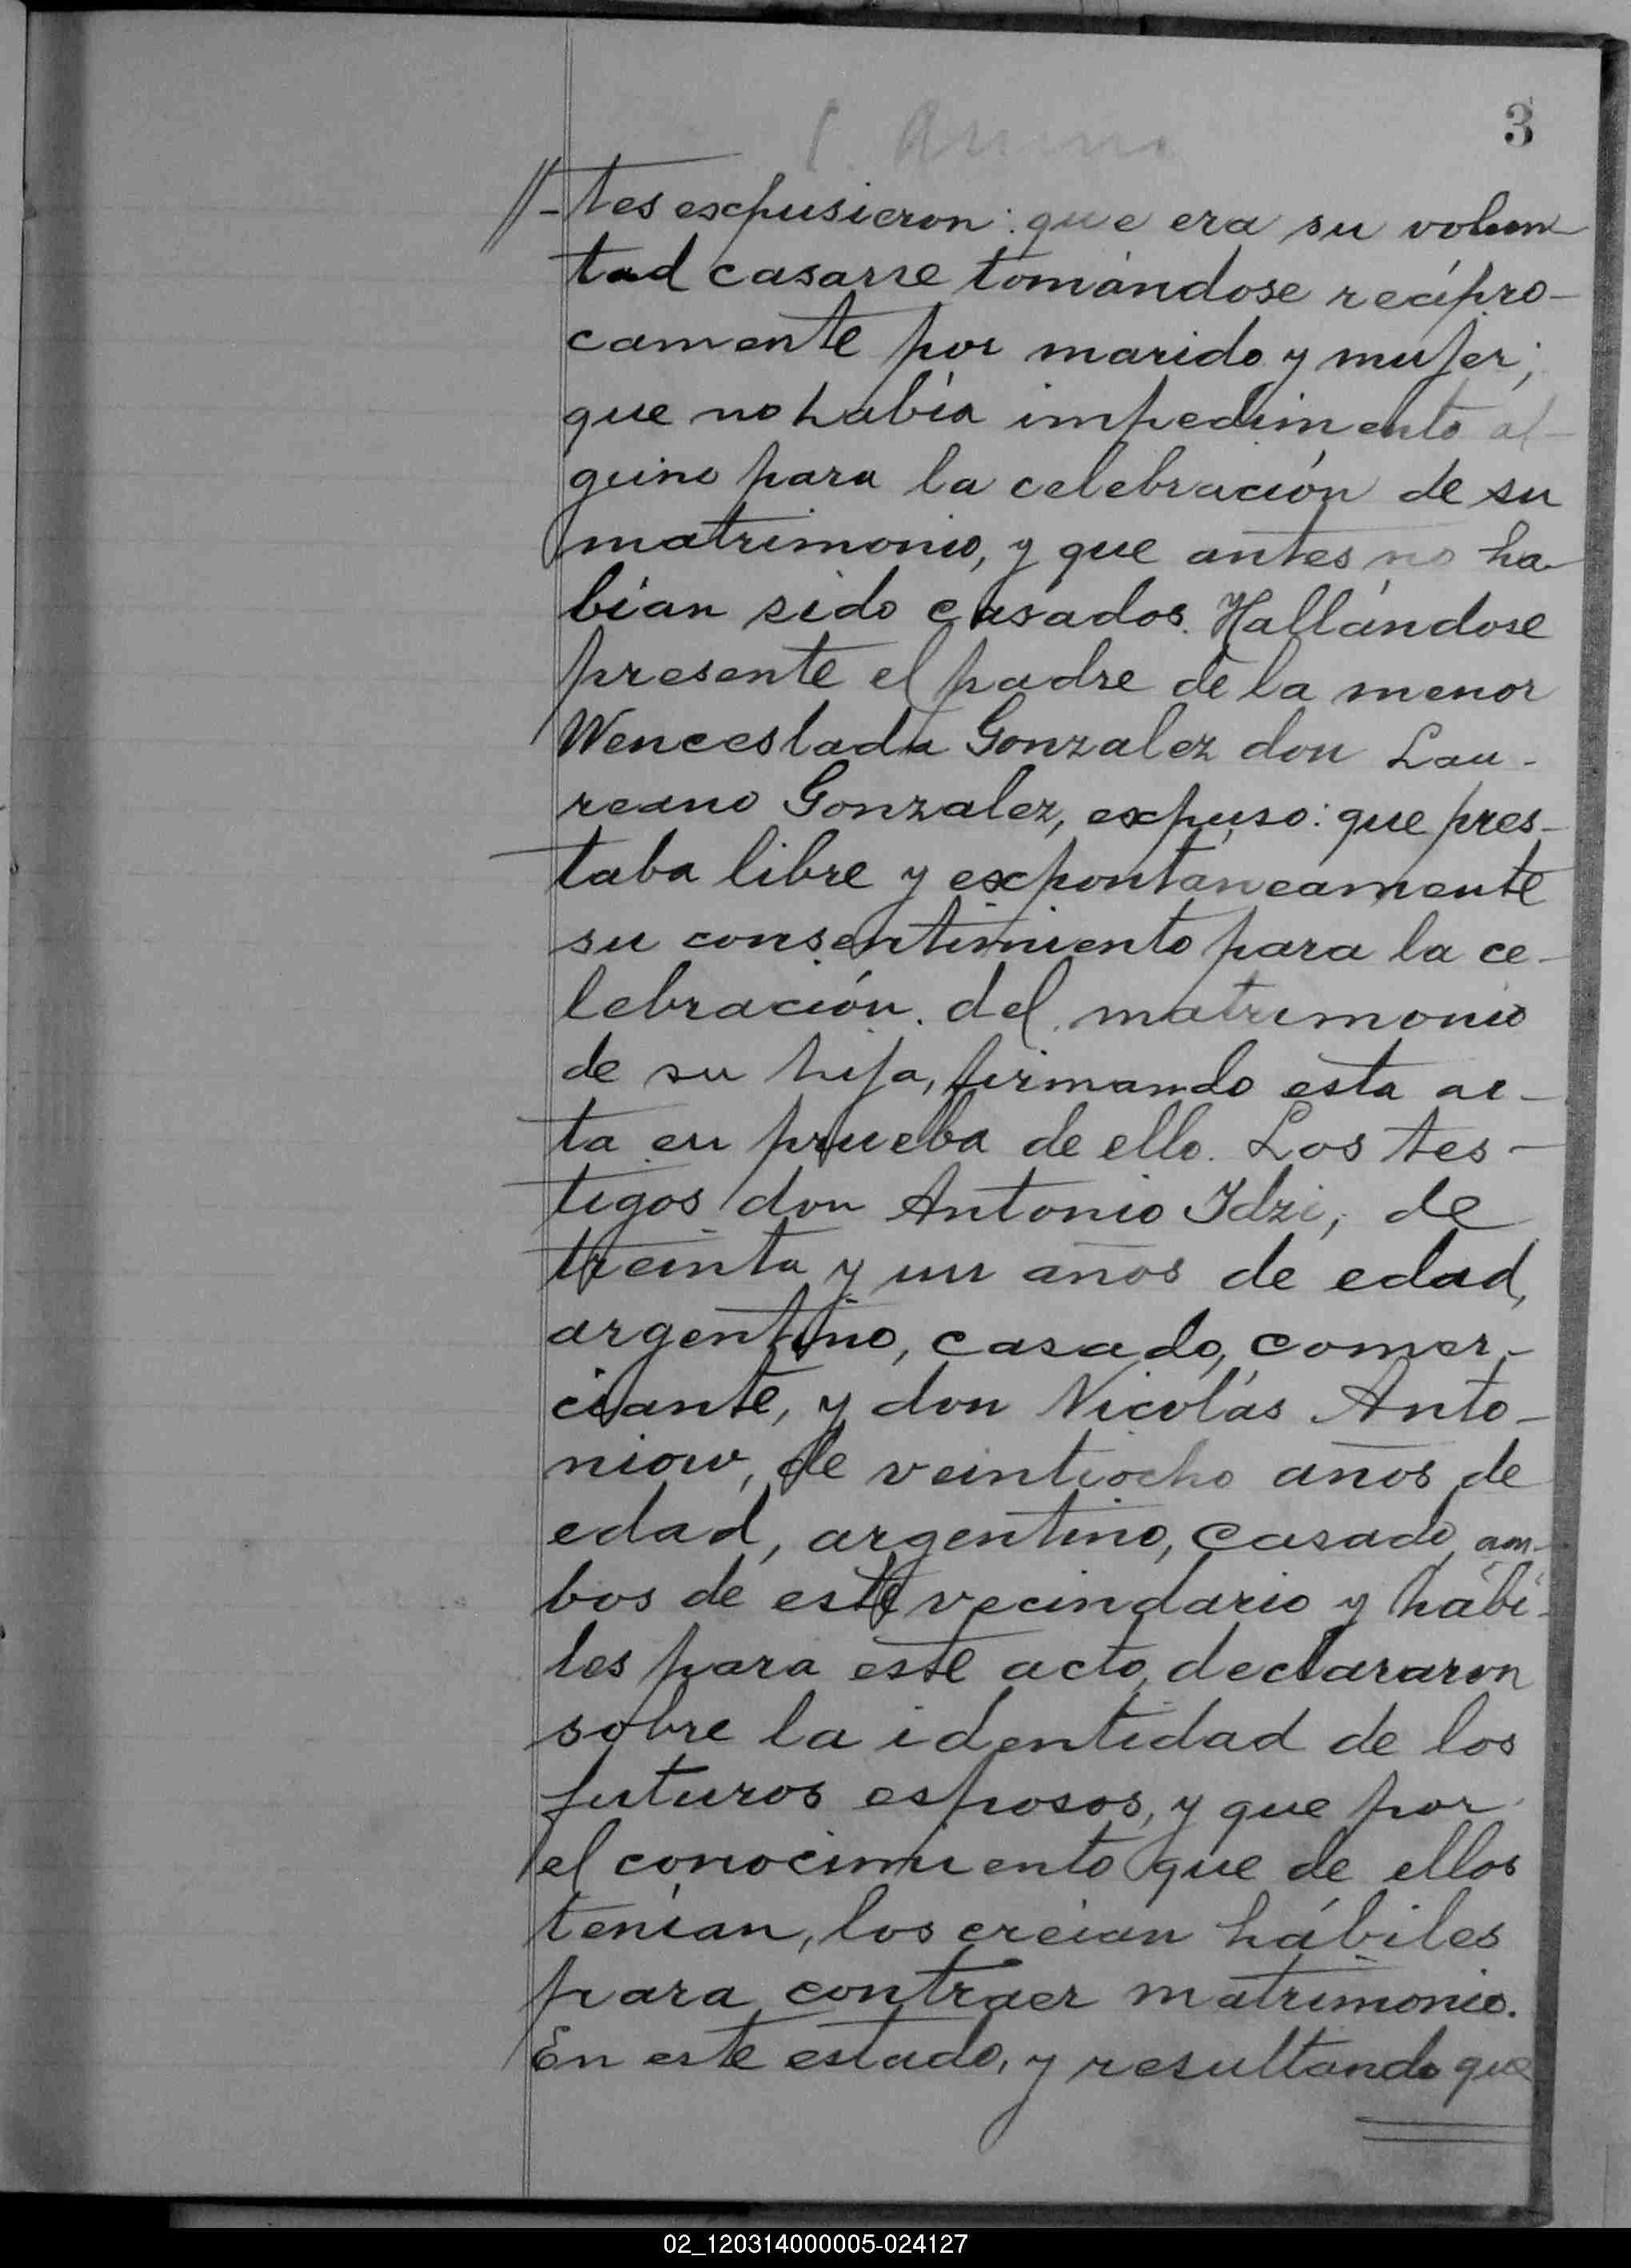 3
//-tes expusieron: que era su volun-
tad casarse tomándose recípro-
camente por marido y mujer;
que no había impedimento al-
guno para la celebración de su
matrimonio, y que antes no ha-
bían sido casados. Hallándose
presente el padre de la menor
Wenceslada Gonzalez don Lau-
reano Gonzalez, expuso: que pres-
taba libre y expontaneamente
su consentimiento para la ce-
lebración del matrimonio
de su hija, firmando esta ac-
ta en prueba de ello. Los tes-
tigos don Antonio Idzi, de
treinta y un años de edad,
argentino, casado, comer-
ciante, y don Nicolás Anto-
niow, de veintiocho años de
edad, argentino, casado, am-
bos de este vecindario y hábi-
les para este acto, declararon
sobre la identidad de los
futuros esposos, y que por
el conocimiento que de ellos
tenían, los creían hábiles
para contraer matrimonio.
En este estado, y resultando que
02_120314000005-024127